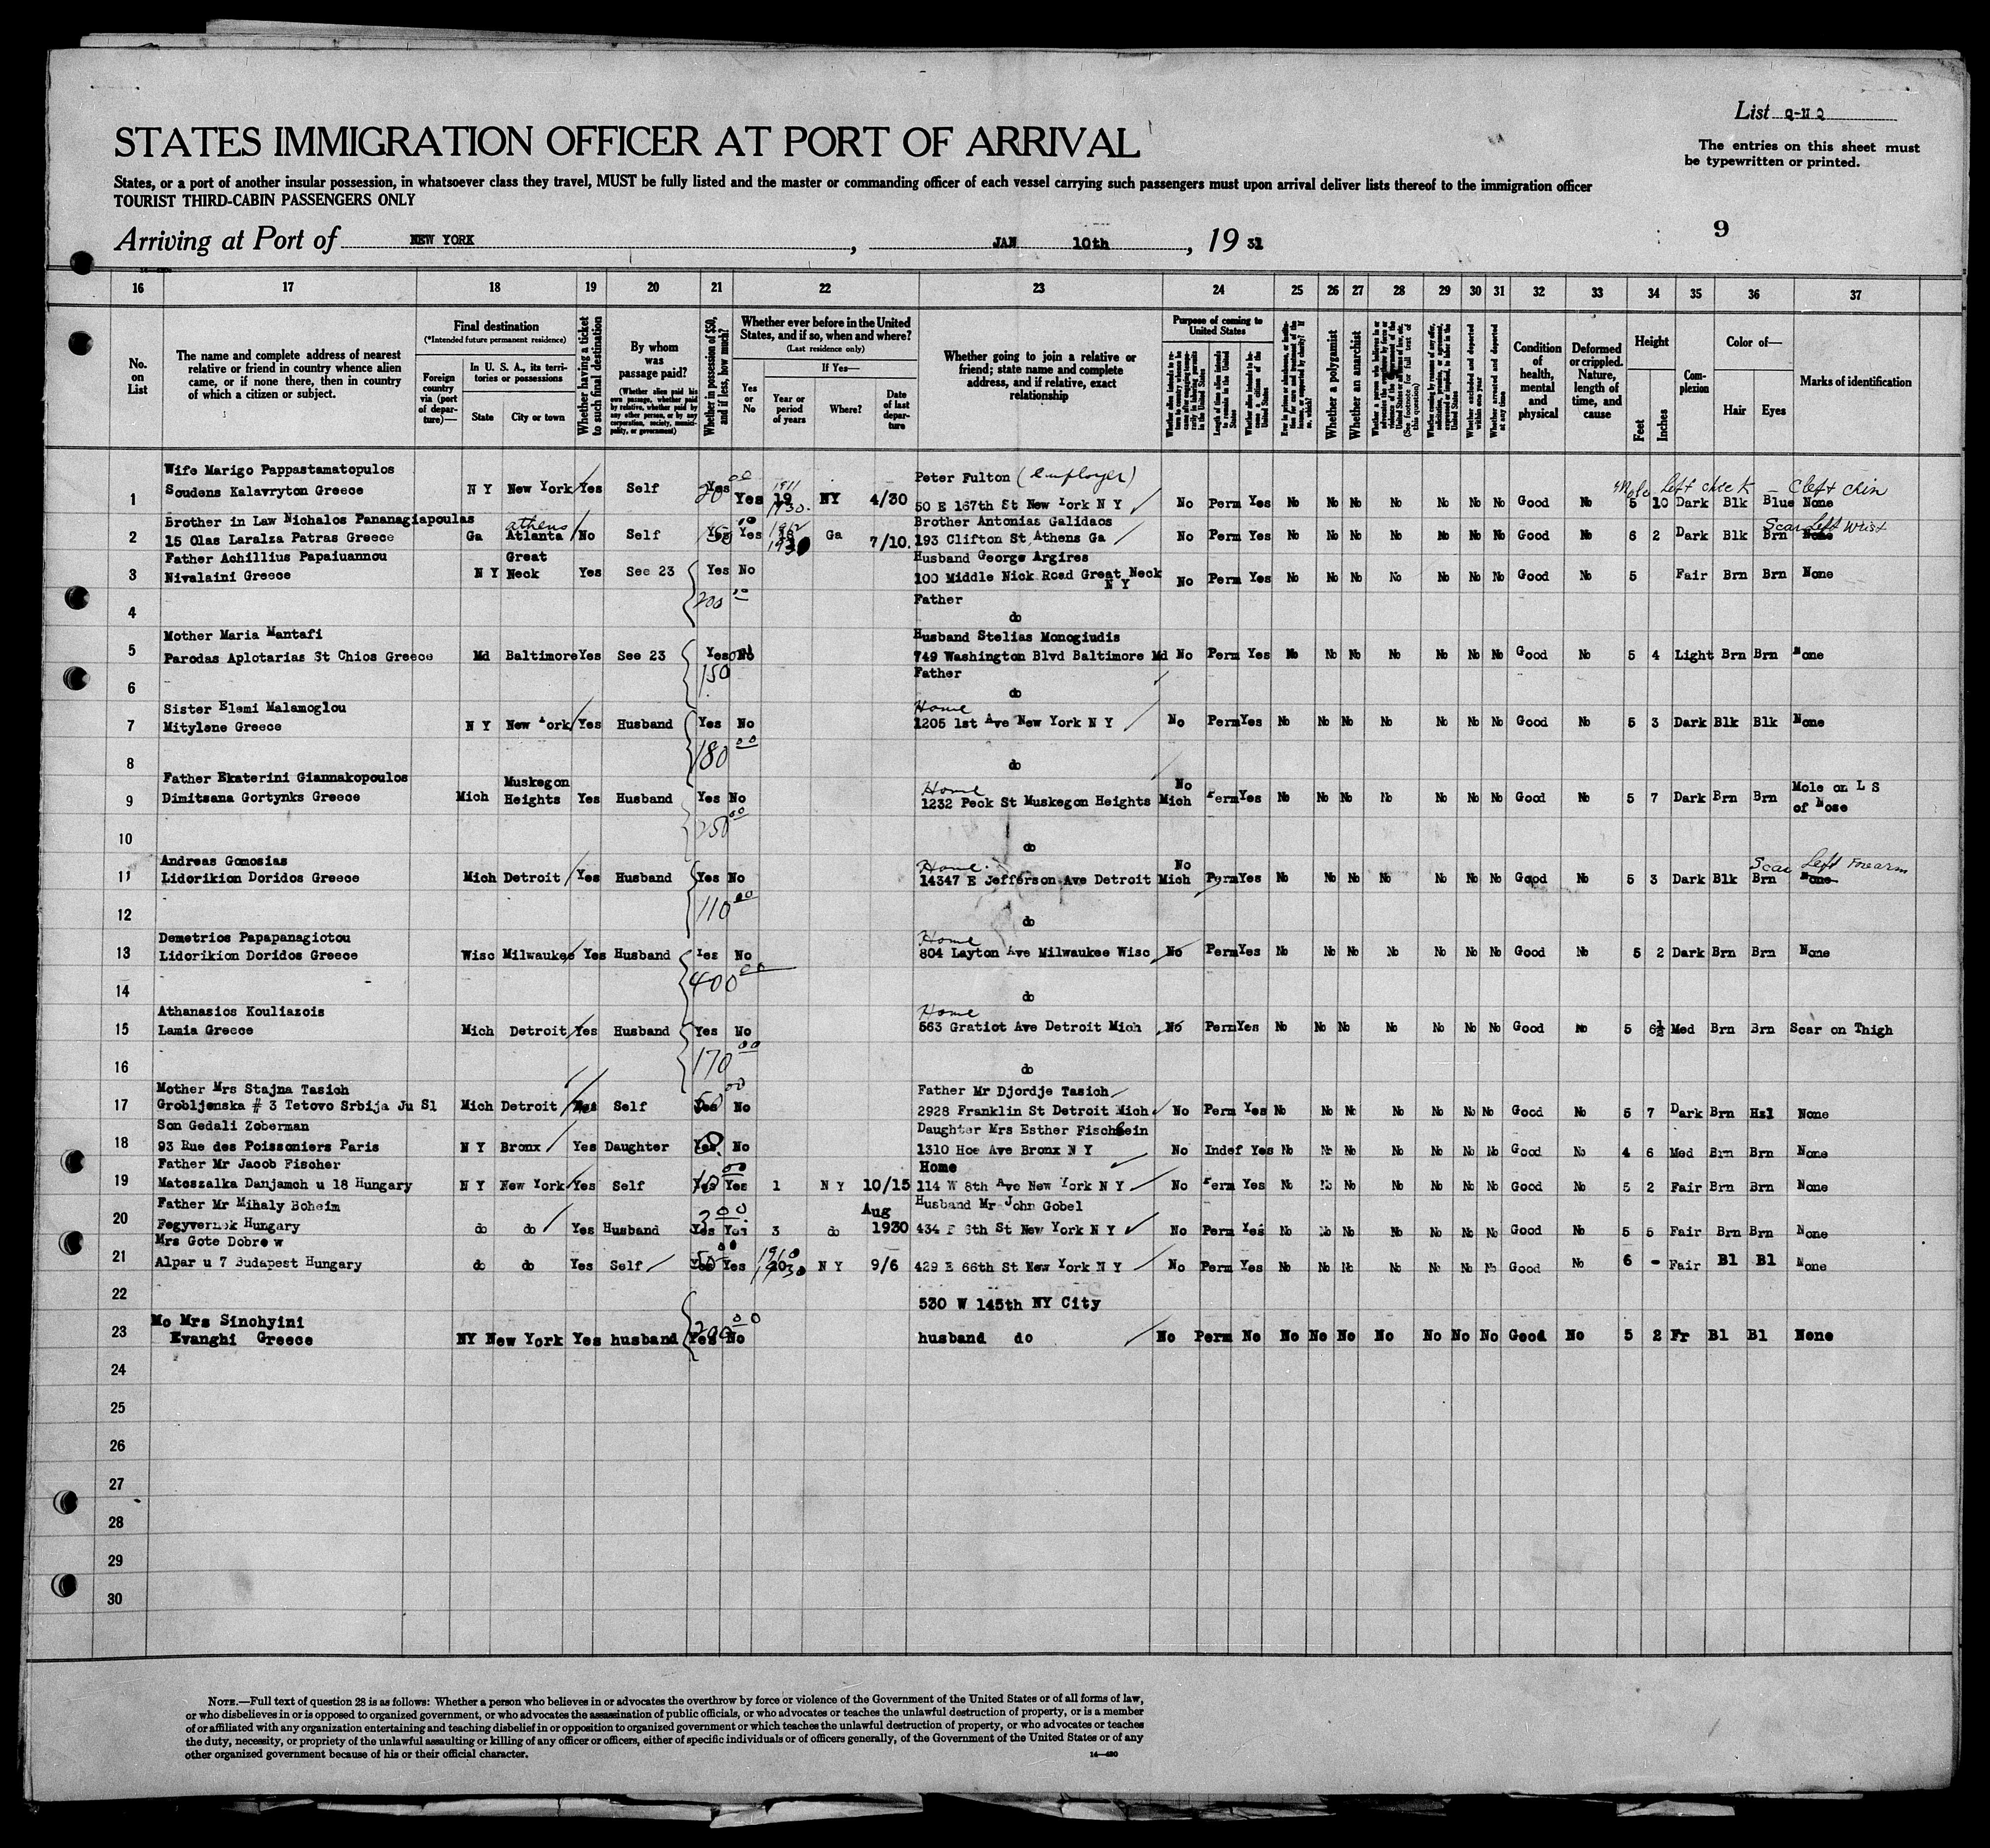 List
STATES IMMIGRATION OFFICER AT PORT OF ARRIVAL
The entries on this sheet must
be typewritten or printed.
States, or a port of another insular possession, in whatsoever class they travel, MUST be fully listed and the master or commanding officer of each vessel carrying such passengers must upon arrival deliver lists thereof to the immigration officer
TOURIST THIRD-CABIN PASSENGERS ONLY
Arriving at Port of NEW YORK, JAN 10th, 19 31
9
16 17 18 19 20 21 22 23 24 25 26 27 28 29 30 31 32 33 34 35 36 37
No. on List
The name and complete address of nearest
relative or friend in country whence alien
came, or if none there, then in country
of which a citizen or subject.
Final destination
(*Intended future permanent residence)
Foreign country via (port of departure)—
In U. S. A., its territories or possessions
State City or town
Whether having a ticket to such final destination
By whom was passage paid?
(Whether alien paid his own passage, whether paid by relative, whether paid by any other person, or by any corporation, society, municipality, or government)
Whether in possession of $50, and if less, how much?
Whether ever before in the United States, and if so, when and where?
(Last residence only)
Yes or No
If Yes—
Year or period of years
Where?
Date of last departure
Whether going to join a relative or
friend; state name and complete
address, and if relative, exact
relationship
Purpose of coming to United States
Length of time alien intends to remain in the United States
Whether a polygamist
Whether an anarchist
Whether excluded and deported within one year
Whether arrested and deported at any time
Condition of health, mental and physical
Deformed or crippled. Nature, length of time, and cause
Height
Feet Inches
Complexion
Color of—
Hair Eyes
Marks of identification
Wife Marigo Pappastamatopulos Peter Fulton (employer) Mole Left cheek - Cleft chin
1 Soudens Kalavryton Greece N Y New York Yes Self Yes 20 00 Yes 19 1911 1930. NY 4/30 50 E 167th St New York N Y No Perm Yes No No No No No No No Good No 5 10 Dark Blk Blue None
Brother in Law Nichalos Pananagiapoulas athens Brother Antonias Galidaos Scar Left Wrist
2 15 Olas Laralza Patras Greece Ga Atlanta No Self Yes Yes 1912 Ga 7/10. 193 Clifton St Athens Ga No Perm Yes No No No No No No No Good No 6 2 Dark Blk Brn None
Father Achillius Papaiuannou Great Husband George Argires
3 Nivalaini Greece N Y Neck Yes See 23 Yes No 100 Middle Nick Road Great Neck N Y No Perm Yes No No No No No No No Good No 5 Fair Brn Brn None
200 Father
4 do
Mother Maria Mantafi Husband Stelias Monogiudis
5 Parodas Aplotarias St Chios Greece Md Baltimore Yes See 23 Yes No 749 Washington Blvd Baltimore Md No Perm Yes No No No No No No No Good No 5 4 Light Brn Brn None
150 Father
6 do
Sister Elemi Malamoglou Home
7 Mitylene Greece N Y New York Yes Husband Yes No 1205 1st Ave New York N Y No Perm Yes No No No No No No No Good No 5 3 Dark Blk Blk None
180 00
8 do
Father Ekaterini Giannakopoulos Muskegon Home No Mole on L S
9 Dimitsana Gortynks Greece Mich Heights Yes Husband Yes No 1232 Peck St Muskegon Heights Mich Perm Yes No No No No No No No Good No 5 7 Dark Brn Brn of Nose
250 00
10 do
Andreas Gomosias Home No Scar Left Forearm
11 Lidorikion Doridos Greece Mich Detroit Yes Husband Yes No 14347 E Jefferson Ave Detroit Mich Perm Yes No No No No No No No Good No 5 3 Dark Blk Brn None
110 00
12 do
Demetrios Papapanagiotou Home
13 Lidorikion Doridos Greece Wisc Milwaukee Yes Husband Yes No 804 Layton Ave Milwaukee Wisc No Perm Yes No No No No No No No Good No 5 2 Dark Brn Brn None
400 00
14 do
Athanasios Kouliazois Home
15 Lamia Greece Mich Detroit Yes Husband Yes No 563 Gratiot Ave Detroit Mich No Perm Yes No No No No No No No Good No 5 6½ Med Brn Brn Scar on Thigh
170 00
16 do
Mother Mrs Stajna Tasich Father Mr Djordje Tasich
17 Grobljenska # 3 Tetovo Srbija Ju Sl Mich Detroit Yes Self Yes No 2928 Franklin St Detroit Mich No Perm Yes No No No No No No No Good No 5 7 Dark Brn Hzl None
Son Gedali Zoberman Daughter Mrs Esther Fischbein
18 93 Rue des Poissoniers Paris N Y Bronx Yes Daughter Yes No 1310 Hoe Ave Bronx N Y No Indef Yes No No No No No No No Good No 4 6 Med Brn Brn None
Father Mr Jacob Fischer Home
19 Mateszalka Danjamch u 18 Hungary N Y New York Yes Self Yes Yes 1 N Y 10/15 114 W 8th Ave New York N Y No Perm Yes No No No No No No No Good No 5 2 Fair Brn Brn None
Father Mr Mihaly Boheim 300 Aug Husband Mr John Gobel
20 Fegyvernek Hungary do do Yes Husband Yes Yes 3 do 1930 434 E 6th St New York N Y No Perm Yes No No No No No No No Good No 5 5 Fair Brn Brn None
Mrs Gote Dobrew
21 Alpar u 7 Budapest Hungary do do Yes Self Yes 50 00 Yes 1910 1930 N Y 9/6 429 E 66th St New York N Y No Perm Yes No No No No No No No Good No 6 - Fair Bl Bl None
22 530 W 145th NY City
Mo Mrs Sinohyini
23 Evanghi Greece NY New York Yes husband Yes 200 00 No husband do No Perm No No No No No No No No Good No 5 2 Fr Bl Bl None
24
25
26
27
28
29
30
NOTE.—Full text of question 28 is as follows: Whether a person who believes in or advocates the overthrow by force or violence of the Government of the United States or of all forms of law,
or who disbelieves in or is opposed to organized government, or who advocates the assassination of public officials, or who advocates or teaches the unlawful destruction of property, or is a member
of or affiliated with any organization entertaining and teaching disbelief in or opposition to organized government or which teaches the unlawful destruction of property, or who advocates or teaches
the duty, necessity, or propriety of the unlawful assaulting or killing of any officer or officers, either of specific individuals or of officers generally, of the Government of the United States or of any
other organized government because of his or their official character.
14—490